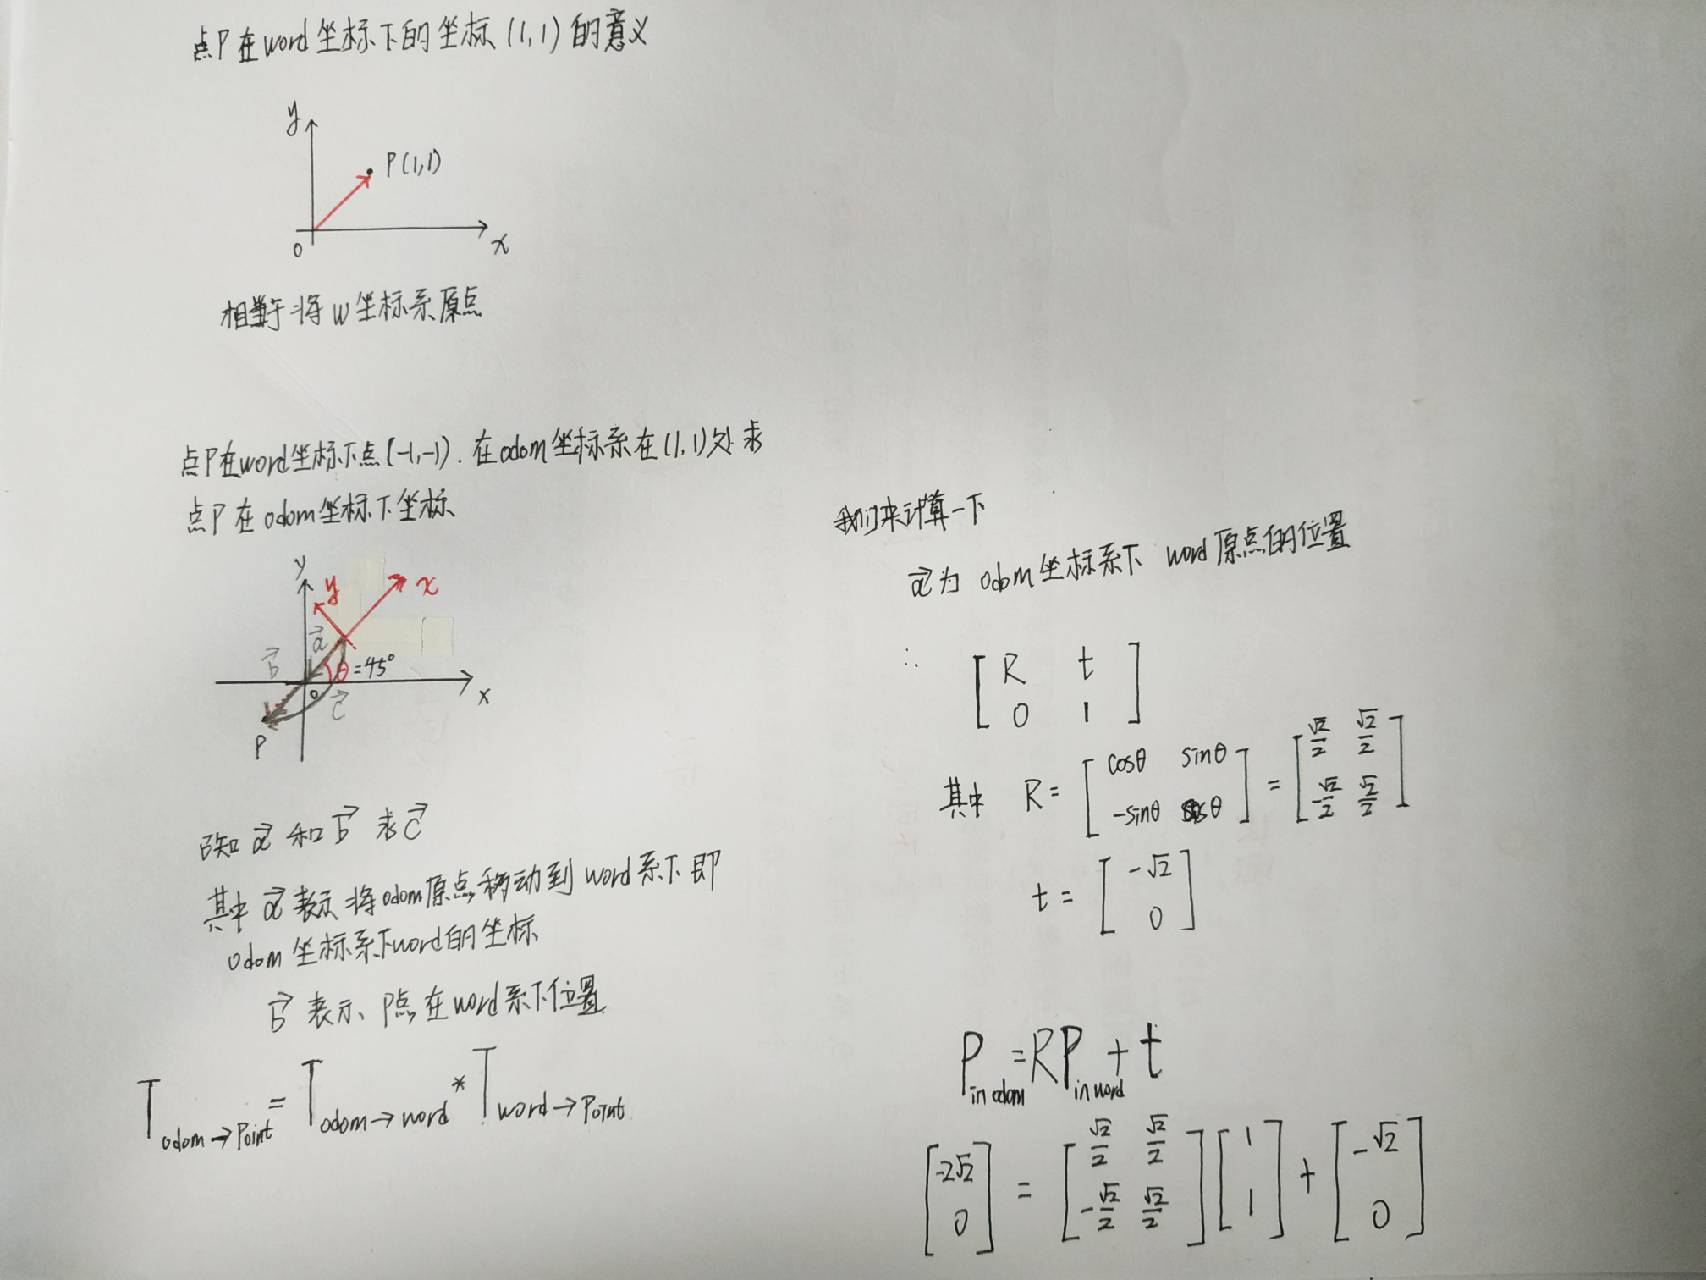 点P在word坐标下的坐标(1,1)的意义
y
P(1,1)
0
x
相当于将w坐标系原点
点P在word坐标下点(-1,-1).在odom坐标系在(1,1)处求
点P在odom坐标下坐标
y
y
x
a⃗
b⃗
θ=45°
0
c⃗
x
P
已知a⃗和b⃗求c⃗
其中a⃗表示将odom原点移动到word系下即
odom坐标系下word的坐标
b⃗表示、P点在word系下位置
T odom→Point = T odom→word * T word→Point
我们来计算一下
a⃗为odom坐标系下word原点的位置
∴ [R t
0 1]
其中 R = [cosθ sinθ
-sinθ cosθ] = [√2/2 √2/2
-√2/2 √2/2]
t = [-√2
0]
P in odom = RP in word + t
[-2√2
0] = [√2/2 √2/2
-√2/2 √2/2] [1
1] + [-√2
0]